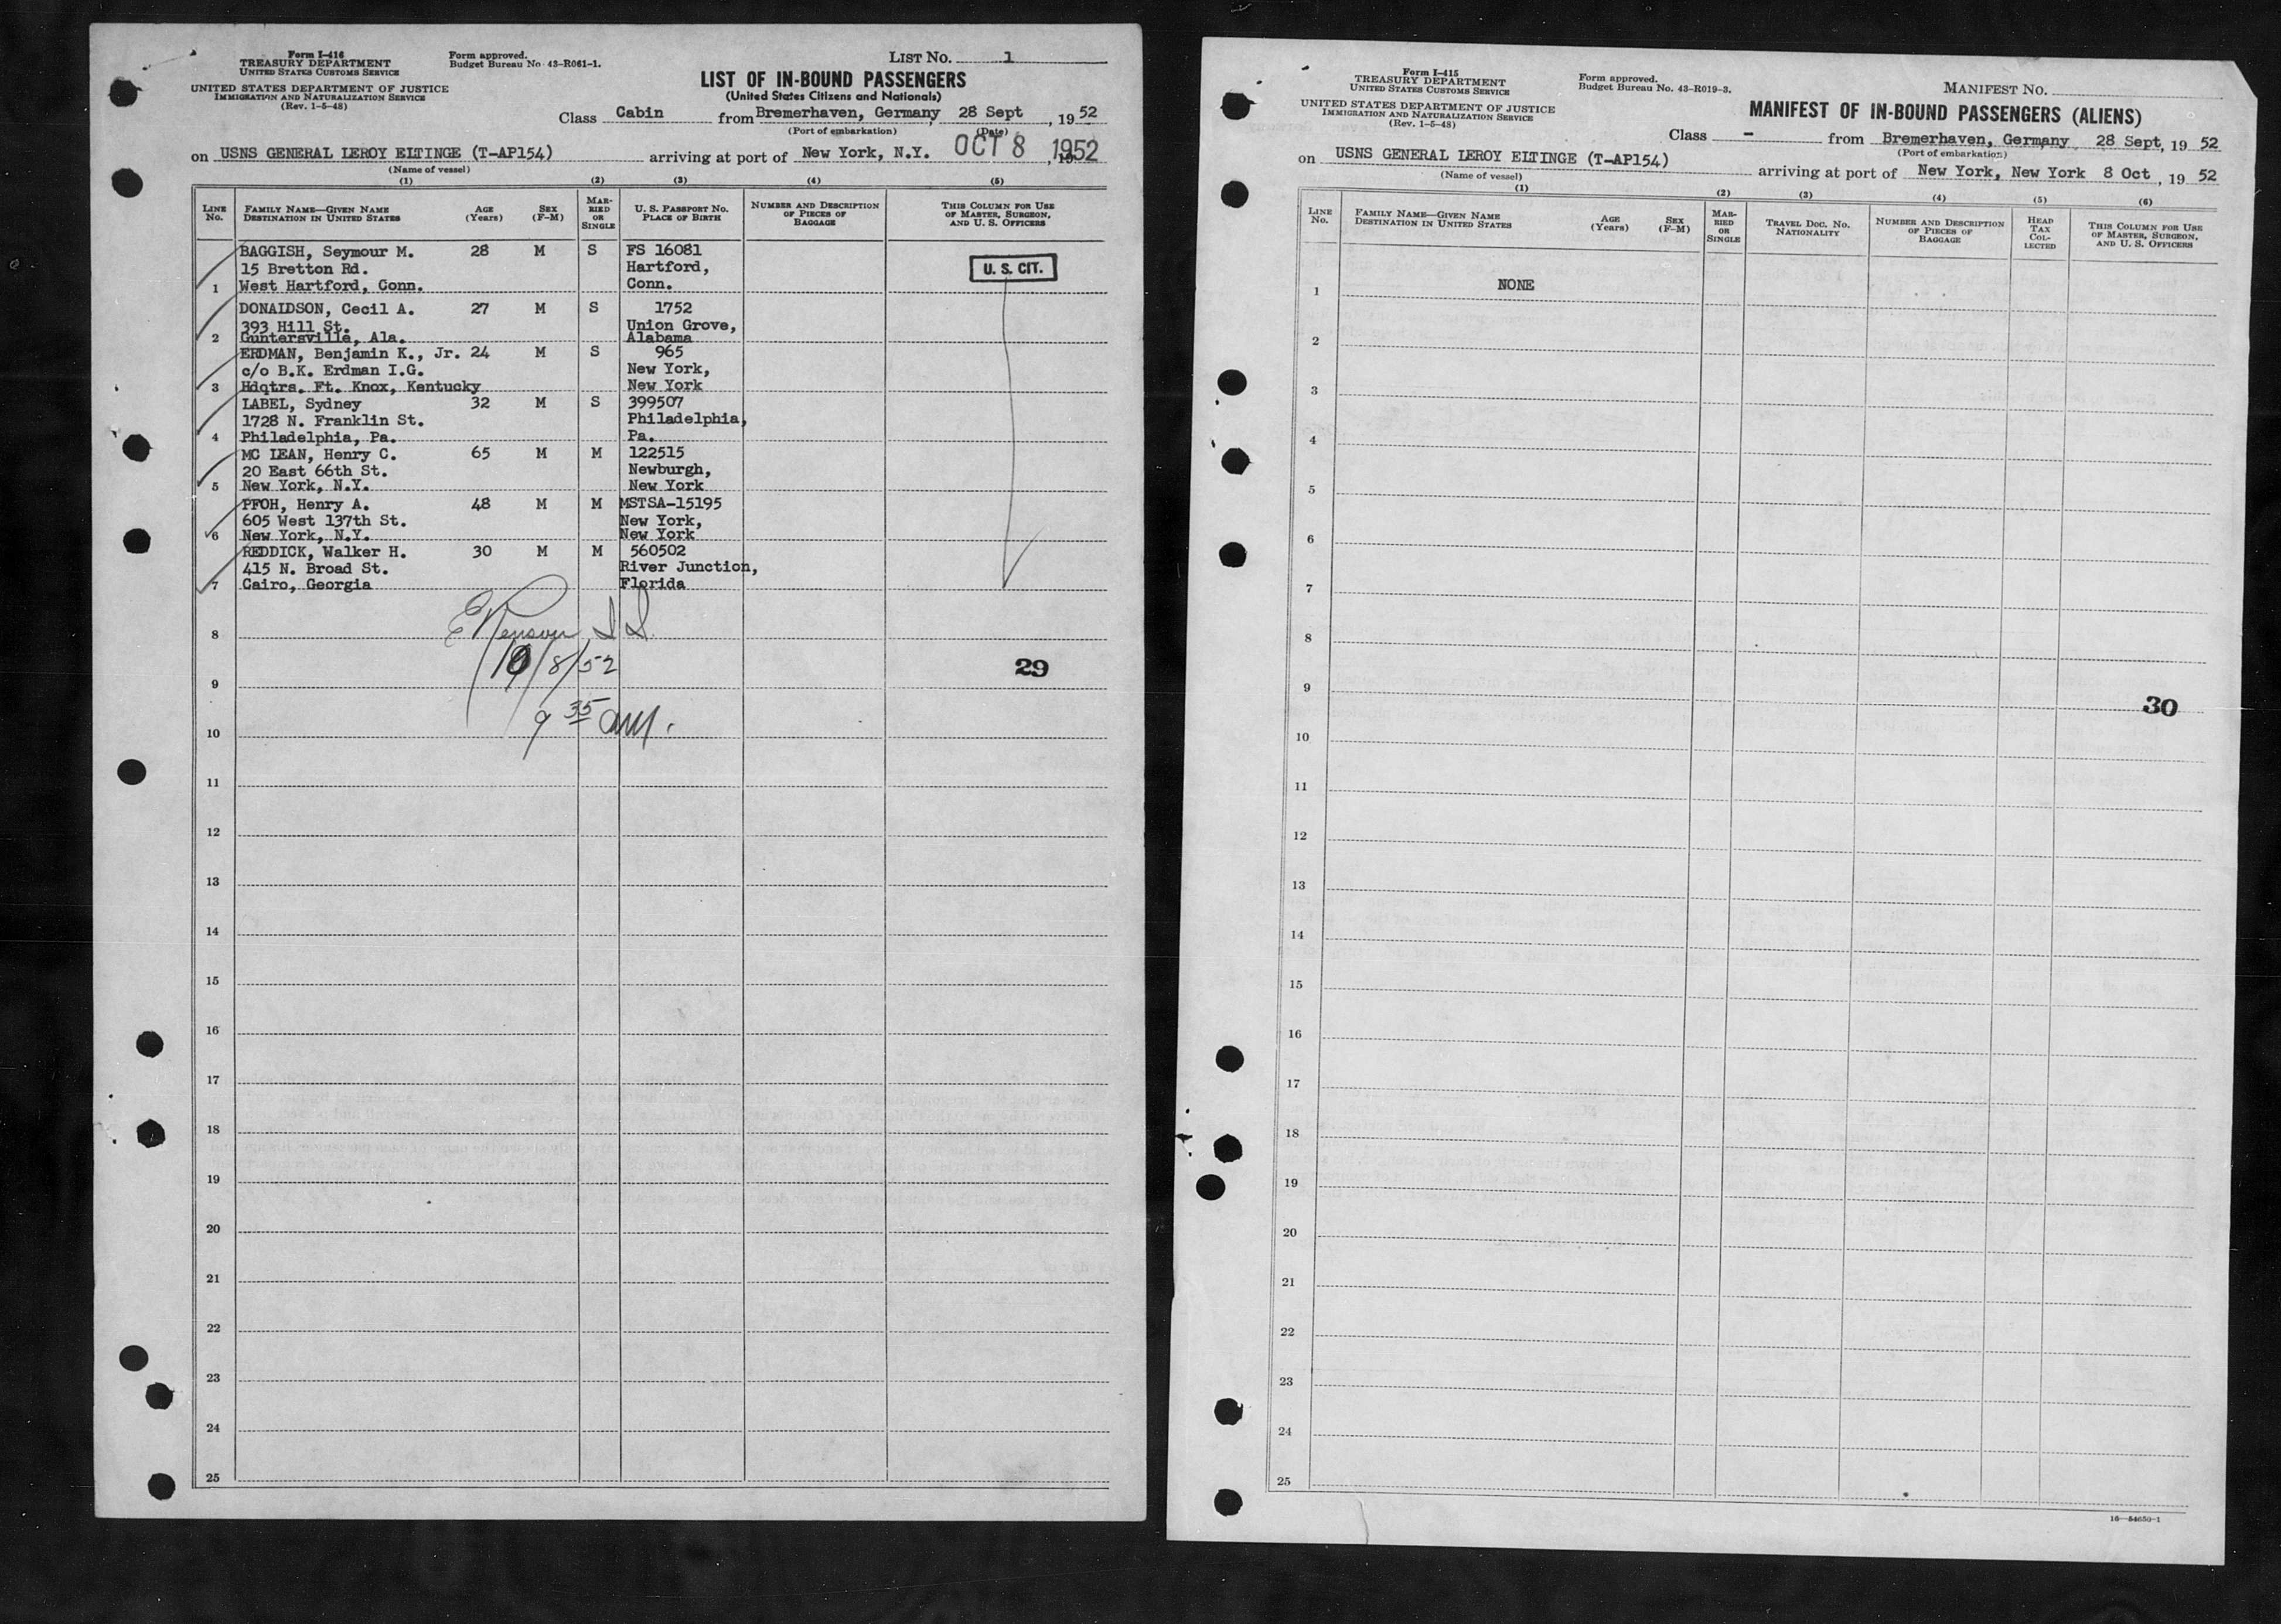 Form I-416
TREASURY DEPARTMENT
UNITED STATES CUSTOMS SERVICE
UNITED STATES DEPARTMENT OF JUSTICE
IMMIGRATION AND NATURALIZATION SERVICE
(Rev. 1-5-48)
Form approved.
Budget Bureau No. 43-R061-1.
LIST NO. 1
LIST OF IN-BOUND PASSENGERS
(United States Citizens and Nationals)
Class Cabin from Bremerhaven, Germany 28 Sept, 19 52
(Port of embarkation) (Date)
on USNS GENERAL LEROY ELTINGE (T-AP154) arriving at port of New York, N.Y. OCT 8 1952
(Name of vessel)
(1) (2) (3) (4) (5)
LINE No. FAMILY NAME—GIVEN NAME DESTINATION IN UNITED STATES AGE (Years) SEX (F-M) MARRIED OR SINGLE U. S. PASSPORT NO. PLACE OF BIRTH NUMBER AND DESCRIPTION OF PIECES OF BAGGAGE THIS COLUMN FOR USE OF MASTER, SURGEON, AND U. S. OFFICERS
BAGGISH, Seymour M. 28 M S FS 16081
15 Bretton Rd. Hartford, U. S. CIT.
1 West Hartford, Conn. Conn.
DONALDSON, Cecil A. 27 M S 1752
393 Hill St. Union Grove,
2 Guntersville, Ala. Alabama
ERDMAN, Benjamin K., Jr. 24 M S 965
c/o B.K. Erdman I.G. New York,
3 Hdqtrs. Ft. Knox, Kentucky New York
LABEL, Sydney 32 M S 399507
1728 N. Franklin St. Philadelphia,
4 Philadelphia, Pa. Pa.
MC LEAN, Henry C. 65 M M 122515
20 East 66th St. Newburgh,
5 New York, N.Y. New York
PFOH, Henry A. 48 M M MSTSA-15195
605 West 137th St. New York,
6 New York, N.Y. New York
REDDICK, Walker H. 30 M M 560502
415 N. Broad St. River Junction,
7 Cairo, Georgia Florida
8
10/8/52 29
9
9 35 am.
10
11
12
13
14
15
16
17
18
19
20
21
22
23
24
25
Form I-415
TREASURY DEPARTMENT
UNITED STATES CUSTOMS SERVICE
UNITED STATES DEPARTMENT OF JUSTICE
IMMIGRATION AND NATURALIZATION SERVICE
(Rev. 1-5-48)
Form approved.
Budget Bureau No. 43-R019-3.
MANIFEST NO.
MANIFEST OF IN-BOUND PASSENGERS (ALIENS)
Class - from Bremerhaven, Germany 28 Sept, 19 52
(Port of embarkation)
on USNS GENERAL LEROY ELTINGE (T-AP154) arriving at port of New York, New York 8 Oct, 19 52
(Name of vessel)
(1) (2) (3) (4) (5) (6)
LINE No. FAMILY NAME—GIVEN NAME DESTINATION IN UNITED STATES AGE (Years) SEX (F-M) MARRIED OR SINGLE TRAVEL DOC. NO. NATIONALITY NUMBER AND DESCRIPTION OF PIECES OF BAGGAGE HEAD TAX COLLECTED THIS COLUMN FOR USE OF MASTER, SURGEON, AND U. S. OFFICERS
1 NONE
2
3
4
5
6
7
8
9
30
10
11
12
13
14
15
16
17
18
19
20
21
22
23
24
25
16—54650-1